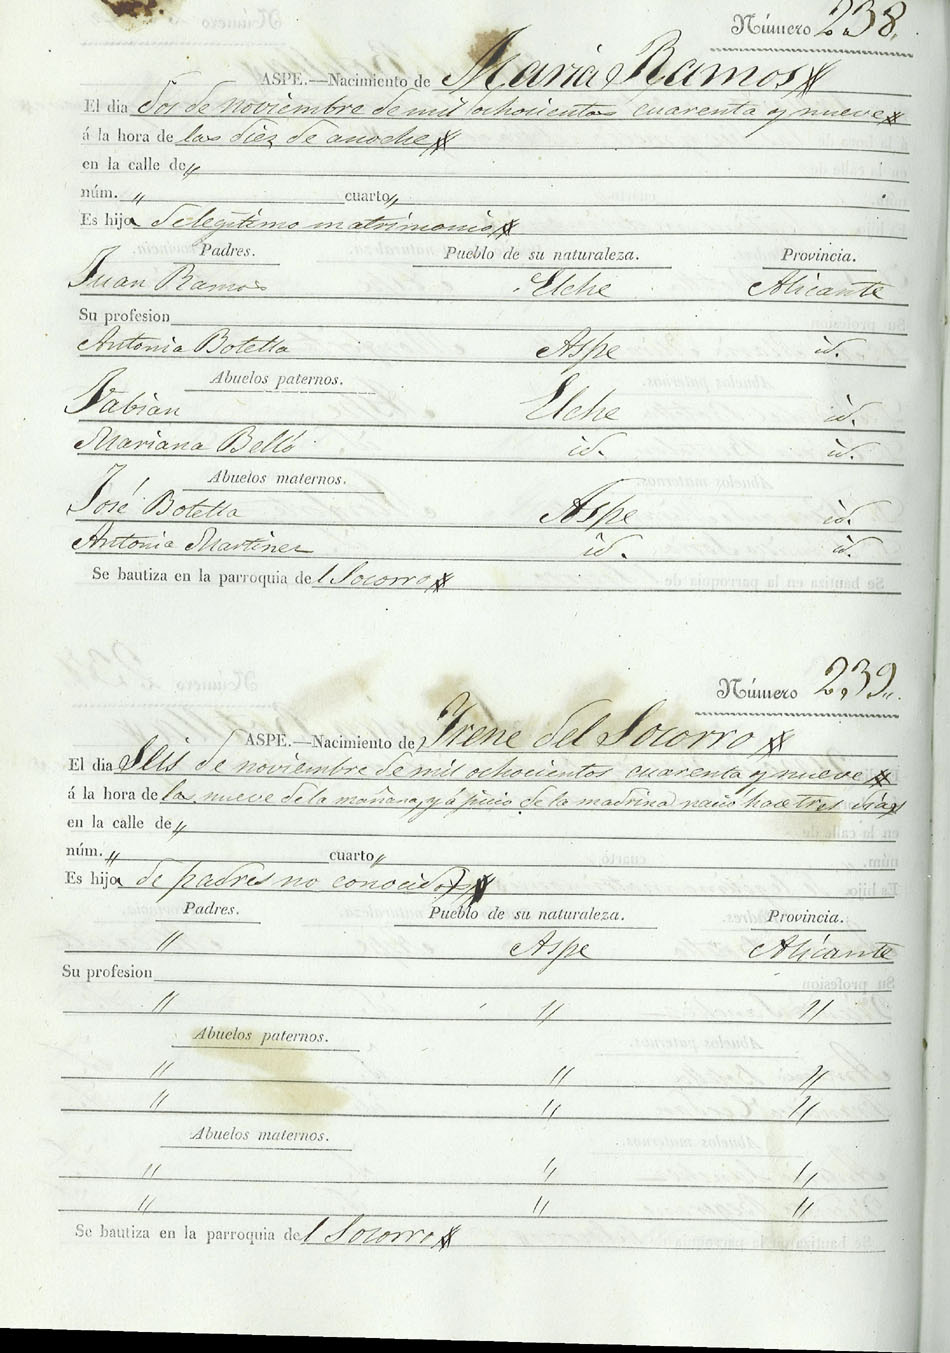 Número 238.
ASPE.—Nacimiento de Maria Ramos
El dia Dos de noviembre de mil ochocientos cuarenta y nueve
á la hora de las diez de anoche
en la calle de "
núm. " cuarto "
Es hija de legitimo matrimonio
Padres. Pueblo de su naturaleza. Provincia.
Juan Ramos Elche Alicante
Su profesion
Antonia Botella Aspe id.
Abuelos paternos.
Fabian Elche id.
Mariana Belló id. id.
Abuelos maternos.
José Botella Aspe id.
Antonia Martinez id. id.
Se bautiza en la parroquia del Socorro
Número 239.
ASPE.—Nacimiento de Irene del Socorro
El dia Seis de noviembre de mil ochocientos cuarenta y nueve
á la hora de las nueve de la mañana, y a juicio de la madrina nació hace tres dias
en la calle de "
núm. " cuarto "
Es hija de padres no conocidos
Padres. Pueblo de su naturaleza. Provincia.
" Aspe Alicante
Su profesion
" " "
Abuelos paternos.
" " "
" " "
Abuelos maternos.
" " "
" " "
Se bautiza en la parroquia del Socorro